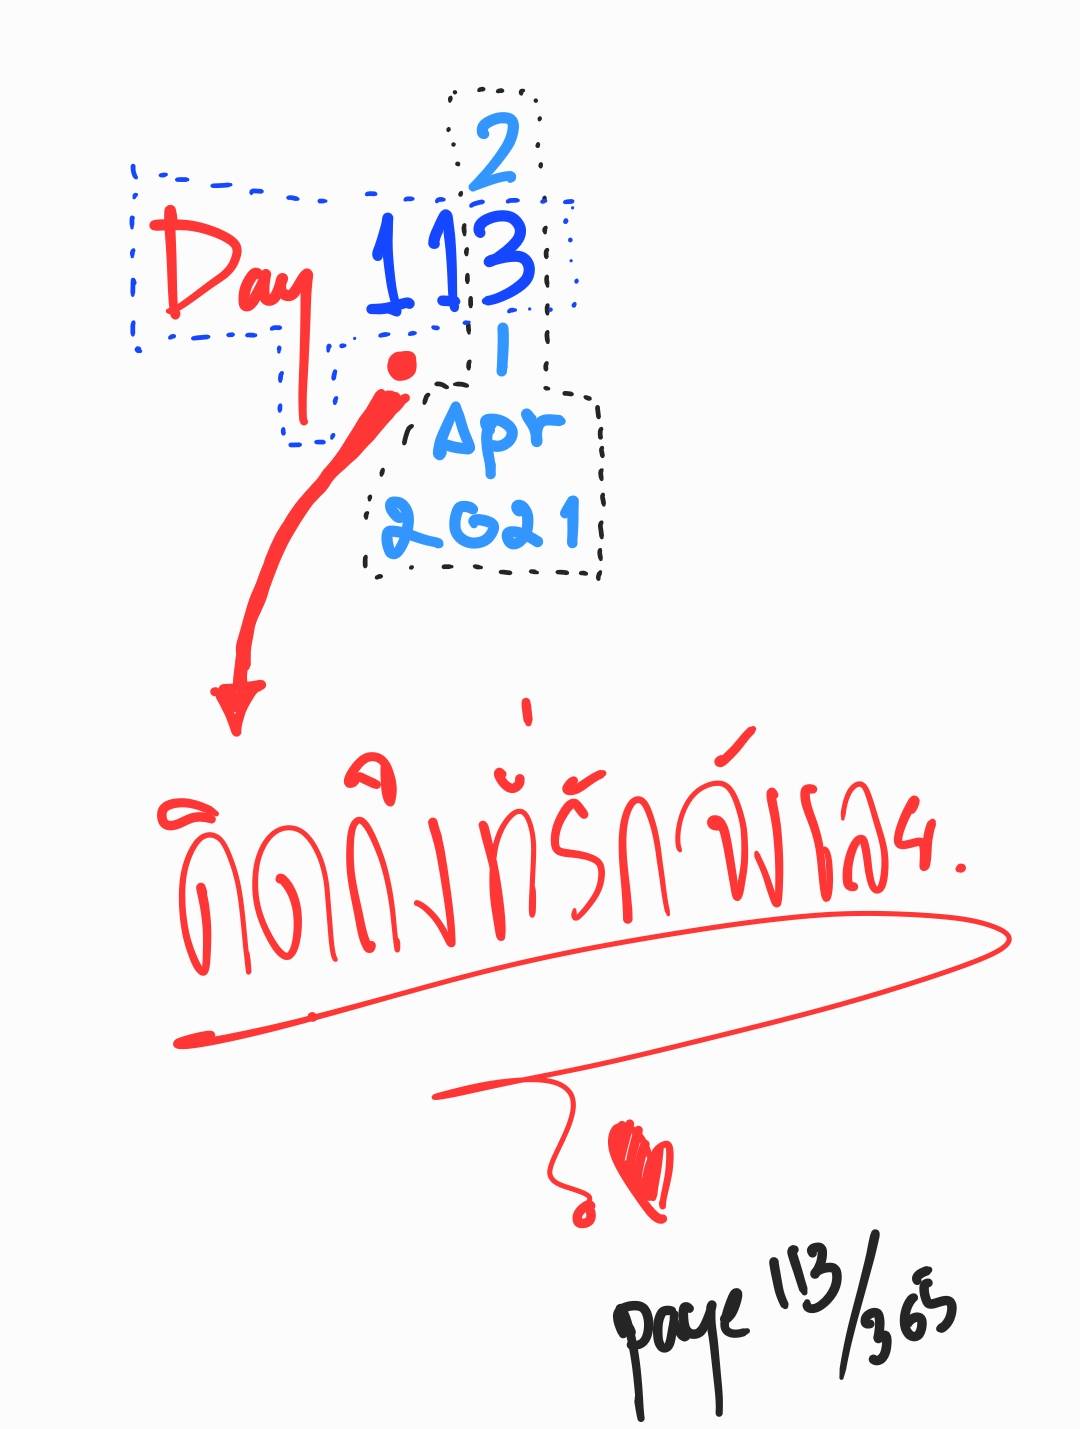 2
Day 113
|
Apr
2021
คิดถึงที่รักจังเลย.
page 113/365